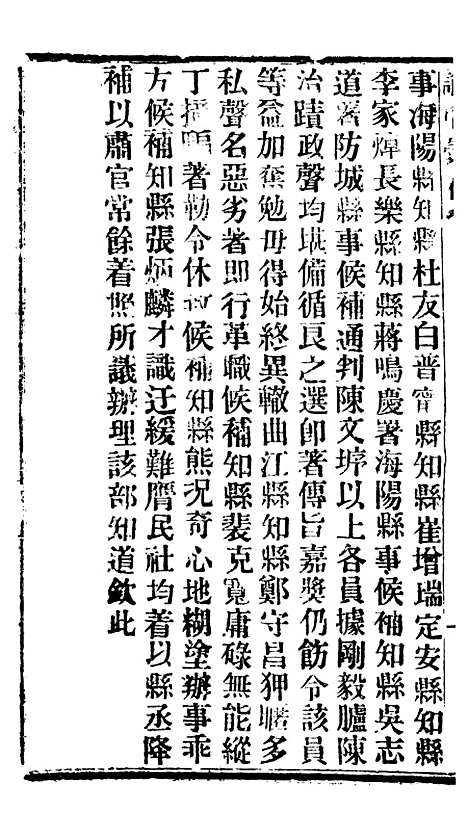 事海陽縣知縣杜友白普寧縣知縣崔增瑞定安縣知縣
李家焯長樂縣知縣蔣鳴慶署海陽縣事候補知縣吳志
道署防城縣事候補通判陳文垿以上各員據剛毅臚陳
治蹟政聲均堪備循良之選卽著傳旨嘉獎仍飭令該員
等益加奮勉毋得始終異轍曲江縣知縣鄭守昌狎暱多
私聲名惡劣著即行革職候補知縣裴克寬庸碌無能縱
丁招搖著勒令休致候補知縣熊况奇心地糊塗辦事乖
方候補知縣張炳麟才識迂緩難膺民社均着以縣丞降
補以肅官常餘着照所議辦理該部知道欽此